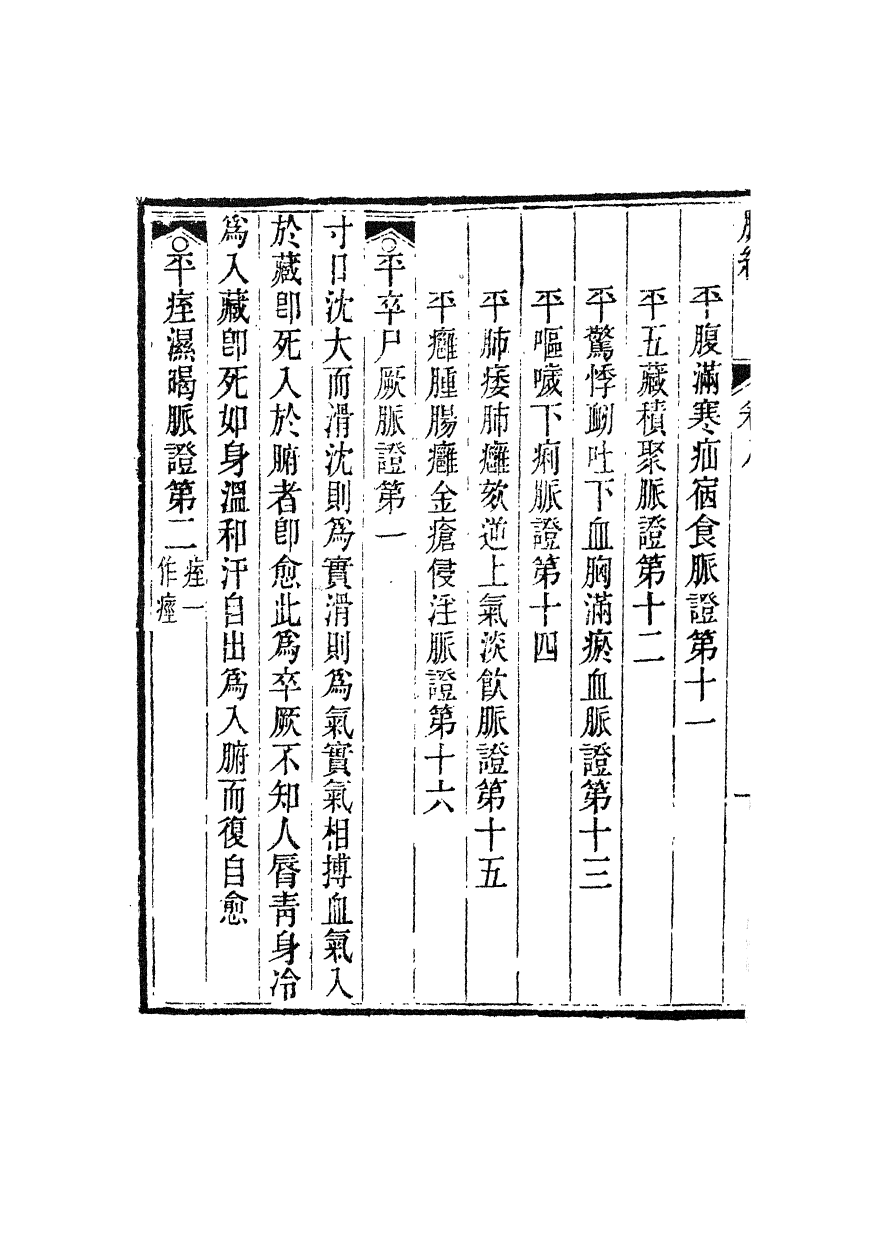 脈經
卷八
平腹滿寒疝宿食脈證第十一
平五藏積聚脈證第十二
平驚悸衂吐下血胸滿瘀血脈證第十三
平嘔噦下痢脈證第十四
平肺痿肺癰欬逆上氣淡飲脈證第十五
平癰腫腸癰金瘡侵淫脈證第十六
○平卒尸厥脈證第一
寸口沈大而滑沈則爲實滑則爲氣實氣相搏血氣入
於藏即死入於腑者即愈此爲卒厥不知人脣青身冷
爲入藏即死如身溫和汗自出爲入腑而復自愈
○平痓濕暍脈證第二痓一作痙